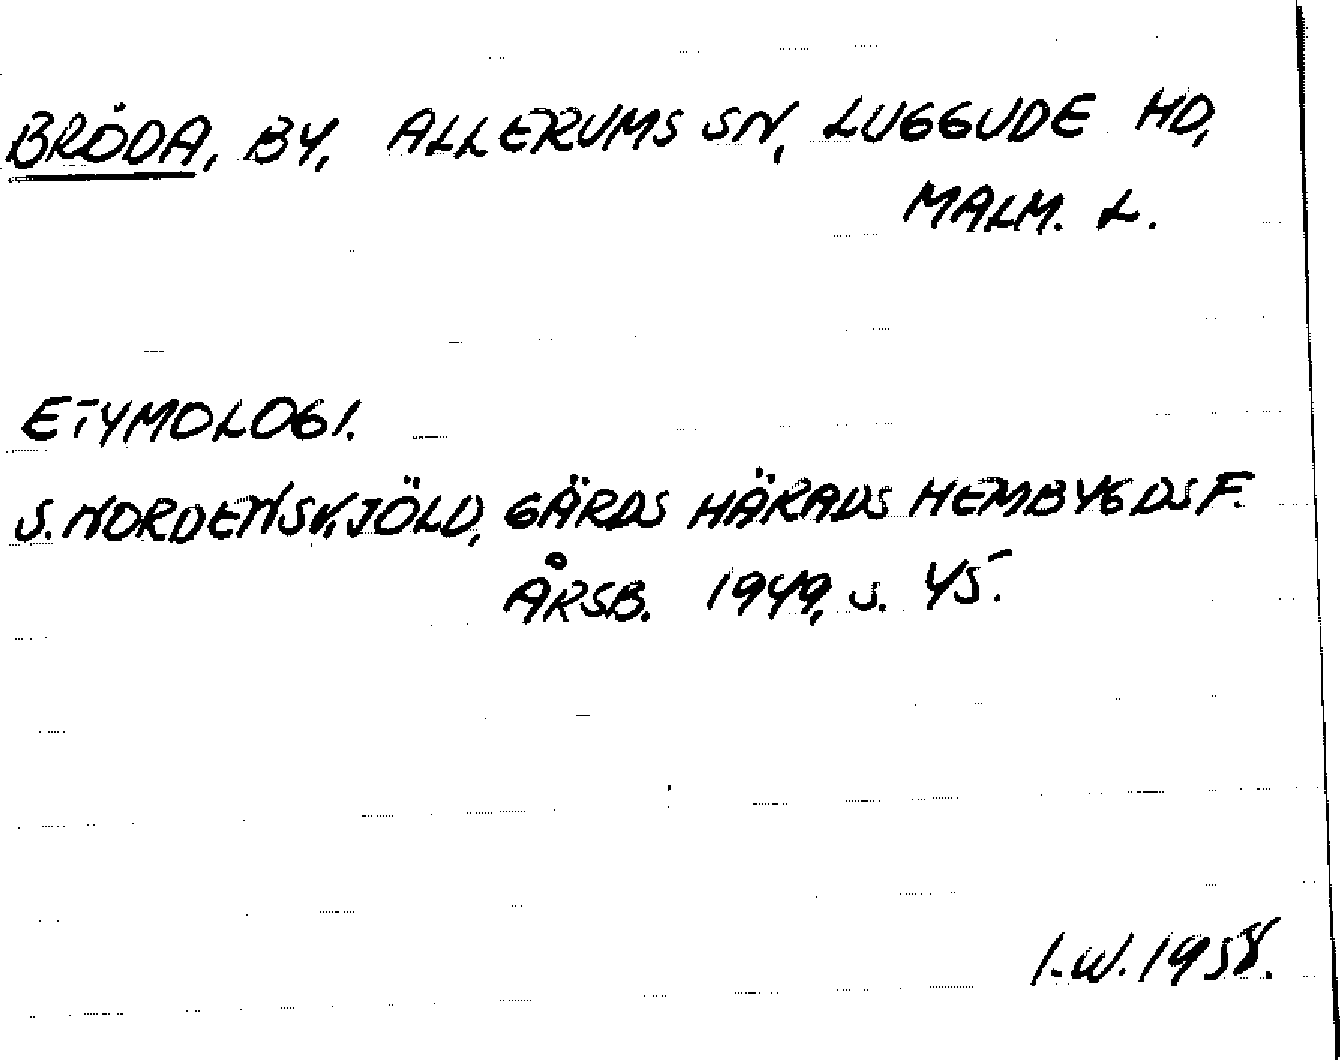 BRÖDA, BY, ALLERUMS SN, LUGGUDE HD,
MALM. L.
ETYMOLOGI.
S. NORDENSKJÖLD, GÄRDS HÄRADS HEMBYGDSF.
ÅRSB. 1949, s. 45.
I.W. 1958.